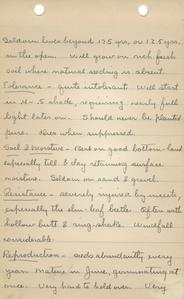 Seldom lives beyond 125 yrs, or 135 yrs.
in the open. Will grow on rich fresh
soil where natural seeding is absent.
Tolerance - quite intolerant. Will start
in N-S shade, requiring nearly full
light later on. Should never be planted
pure. Dies when suppressed.
Soil & Moisture - Best on good bottom-land
especially till & clay retaining surface
moisture. Seldom on sand & gravel.
Resistance - severely injured by insects,
especially the elm-leaf beetle. Often with
hollow butt & ring-shake. Windfall
considerable.
Reproduction - seeds abundantly every
year. Mature in June, germinating at
once. Very hard to hold over. Very